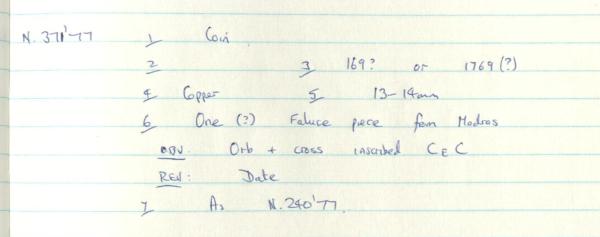 N. 371'77 1 Coin
2 3 169? or 1769(?)
4 Copper 5 13-14mm
6 One (?) Faluce piece from Madras
OBV: Orb + cross inscribed CEC
REV: Date
7 As N.240'77.